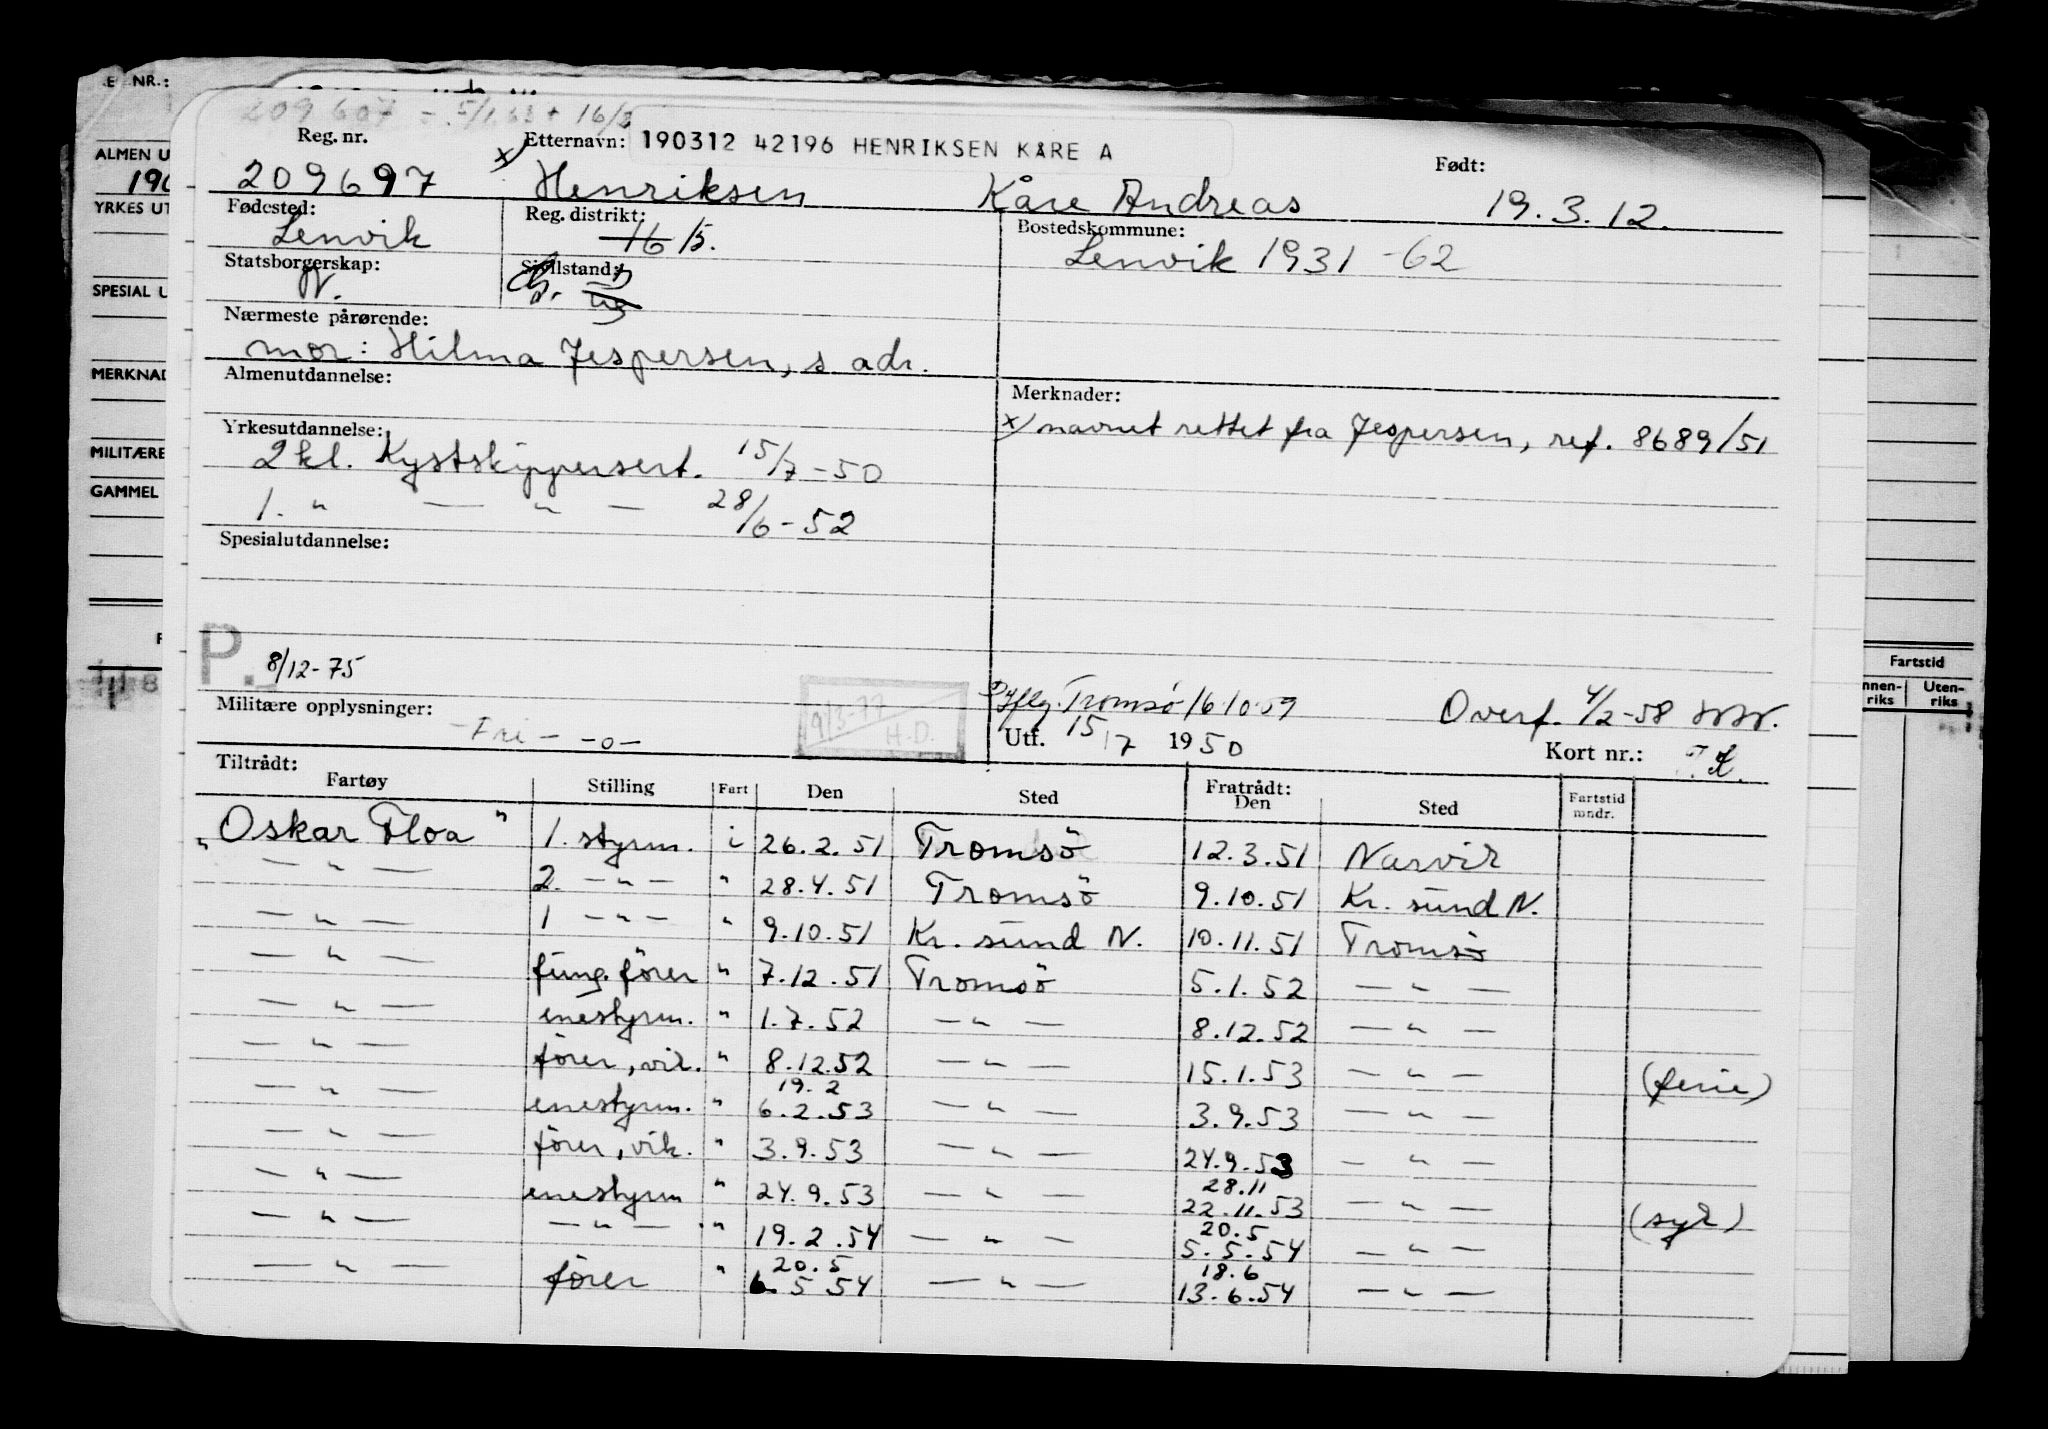 E NR.:
209 607 = 5/1.63 + 16/3
Reg. nr. Etternavn: 190312 42196 HENRIKSEN KÅRE A Født:
209697 x/ Henriksen Kåre Andreas 19.3.12.
ALMEN U
190
YRKES UT
SPESIAL U
MERKNAD
MILITÆRE
GAMMEL
Fødested: Reg. distrikt: Bostedskommune:
Lenvik 16 15. Lenvik 1931 -62
Statsborgerskap: Sivilstand:
N. ug
Nærmeste pårørende:
mor: Hilma Jespersen, s adr.
Almenutdannelse: Merknader:
x/ navnet rettet fra Jespersen, ref. 8689/51
Yrkesutdannelse:
2 kl. Kystskippersert. 15/7-50
1. " — " — 28/6-52
Spesialutdannelse:
P.
8/12-75
19/3-77
H.D.
Militære opplysninger:
-Fri- -o-
Tromsø 16.10.59 Overf. 4/2-58
Utf. 15/7 1950 Kort nr.:
Fartstid
nnen-riks Uten-riks
Tiltrådt: Fratrådt:
Fartøy Stilling Fart Den Sted Den Sted Fartstid mndr.
"Oskar Floa" 1. styrm. i 26.2.51 Tromsö 12.3.51 Narvik
— " — 2. — " — " 28.4.51 Tromsö 9.10.51 Kr. sund N.
— " — 1 — " — " 9.10.51 Kr. sund N. 10.11.51 Tromsö
— " — fung. förer " 7.12.51 Tromsö 5.1.52 — " —
— " — enestyrm. " 1.7.52 — " — 8.12.52 — " —
— " — förer, vik. " 8.12.52 — " — 15.1.53 — " — (ferie)
19.2
— " — enestyrm. " 6.2.53 — " — 3.9.53 — " —
— " — förer, vik. " 3.9.53 — " — 24.9.53 — " —
28.11
— " — enestyrm " 24.9.53 — " — 22.11.53 — " — (syk)
20.5
— " — — " — " 19.2.54 — " — 5.5.54 — " —
20.5 18.6
— " — förer " 6.5.54 — " — 13.6.54 — " —